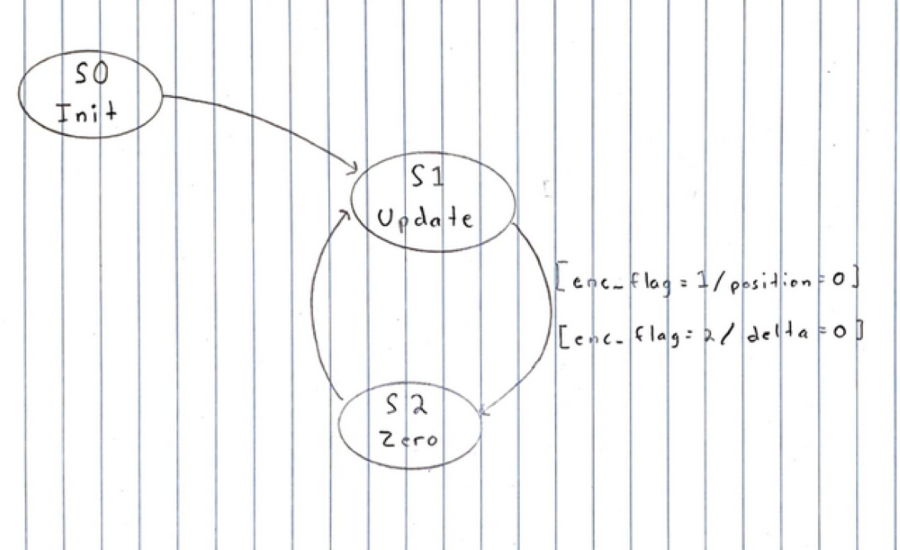 S0
Init
S1
Update
[enc_flag=1/position=0]
[enc_flag=2/ delta=0]
S2
Zero